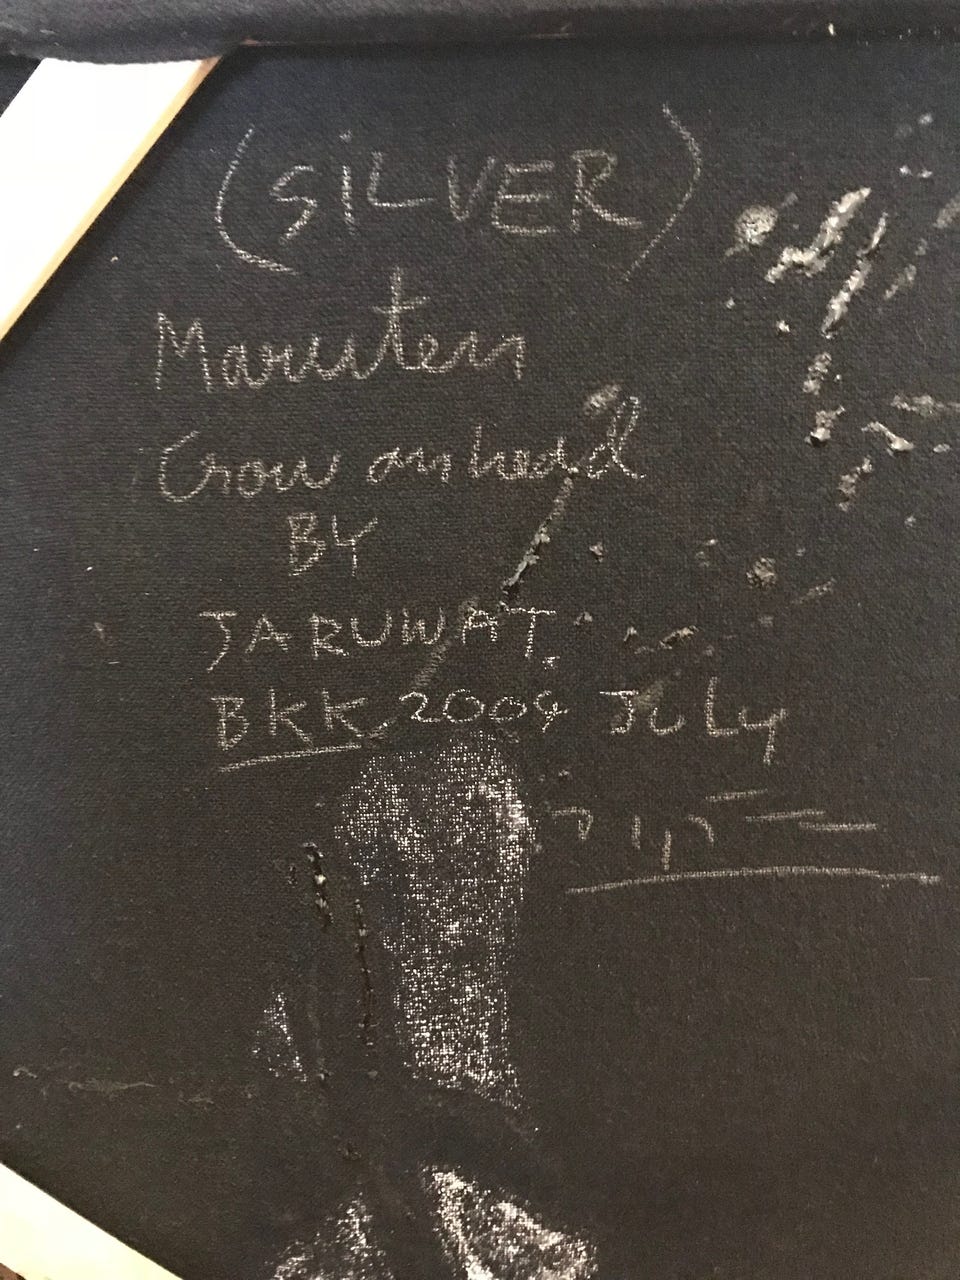 (SiLVER)
Crow on head
BY
JARUWAT.
BKK 2004 July